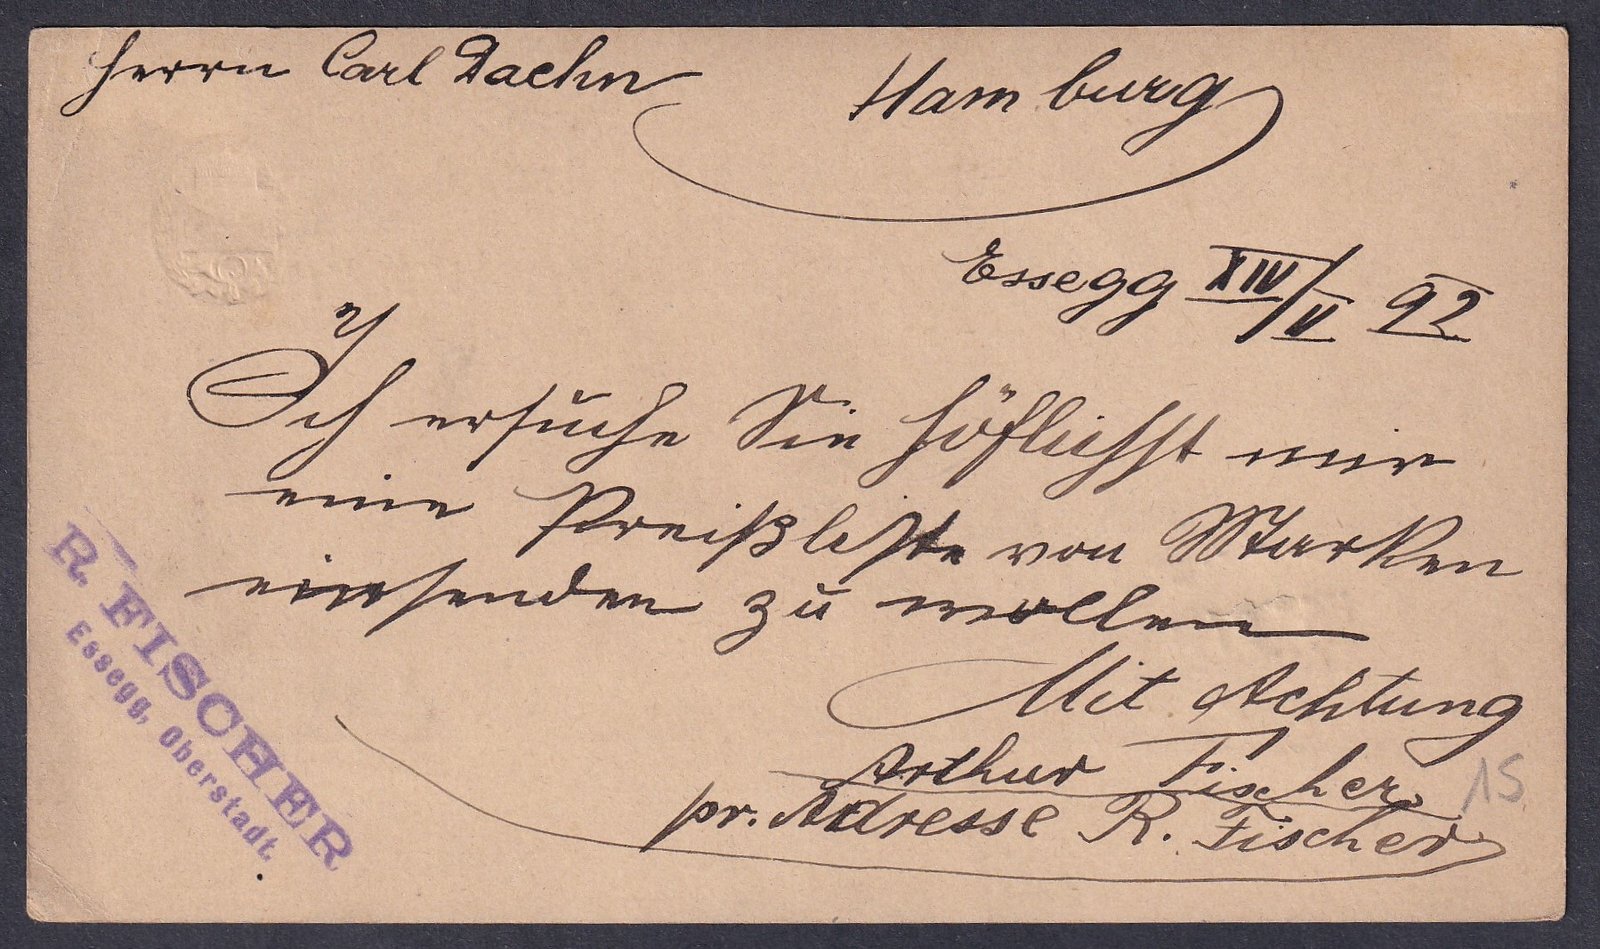 Herrn Carl Daehn Hamburg
Essegg XIV/V 92
Ich ersuche Sie höflichst mir
eine Preißliste von Marken
einsenden zu wollen
Mit Achtung
Arthur Fischer
pr. Adresse R. Fischer
15
R. FISCHER
Essegg, Oberstadt.